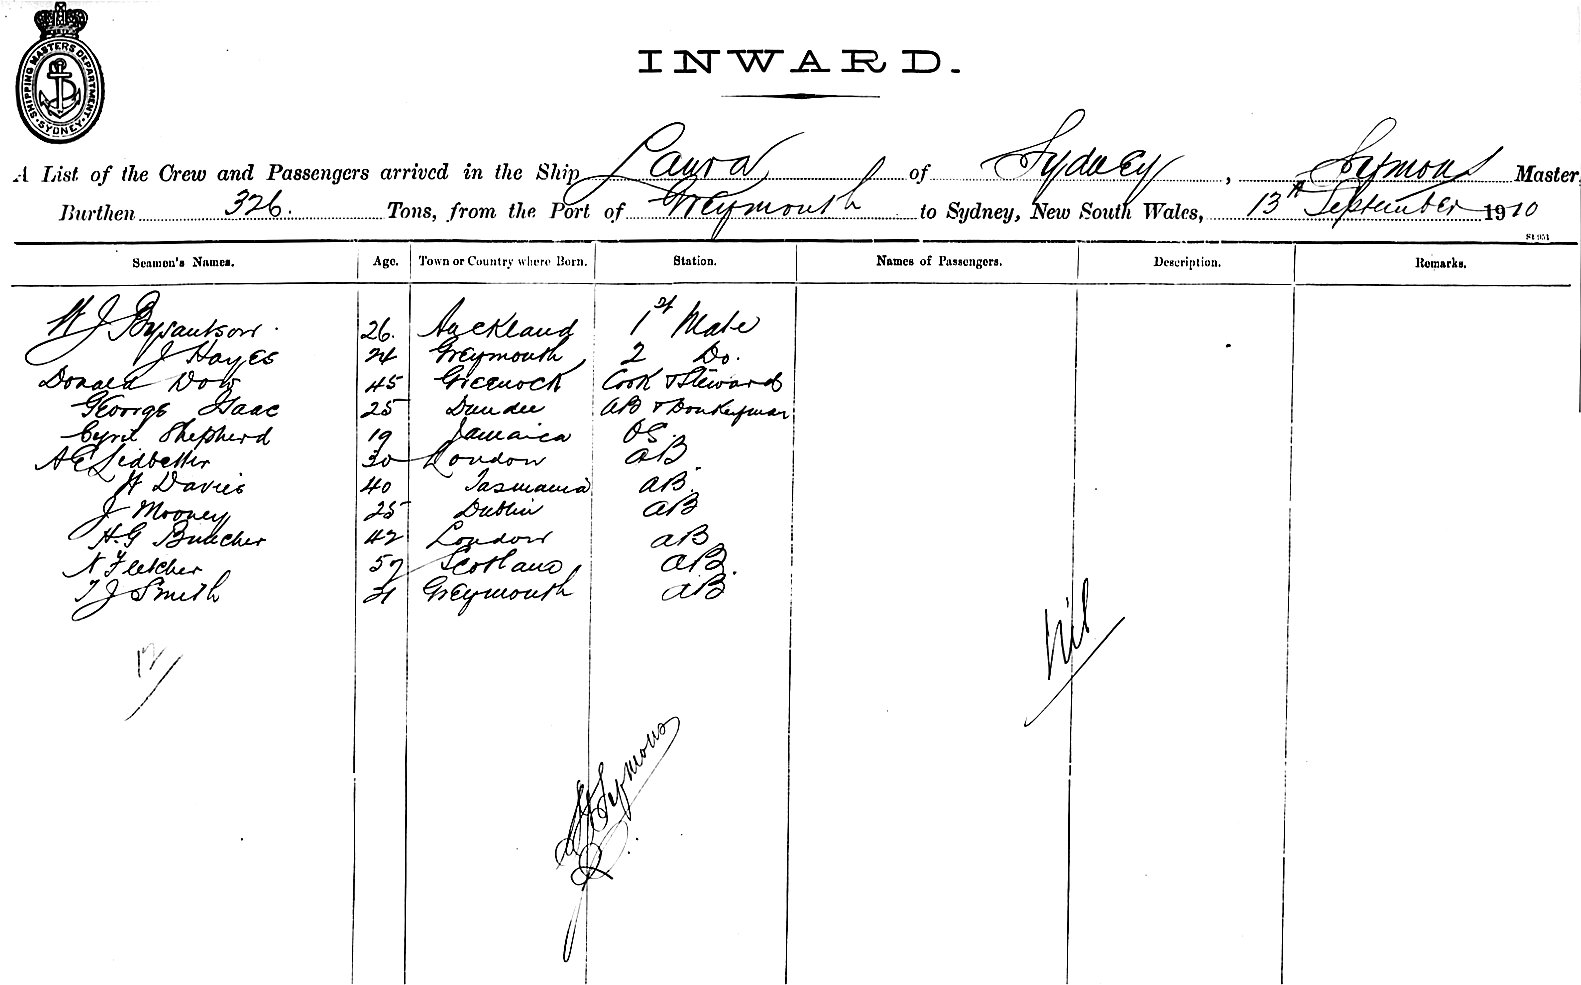 SHIPPING MASTERS DEPARTMENT
SYDNEY
INWARD.
A List of the Crew and Passengers arrived in the Ship Laura of Sydney, Seymons Master,
Burthen 326. Tons, from the Port of Greymouth to Sydney, New South Wales, 13th September 1910
Seamen's Names. Age. Town or Country where Born. Station. Names of Passengers. Description. Remarks.
26. Auckland 1st Mate
J Hayes 24 Greymouth 2 Do.
Donald Dow 45 Greenock Cook & Steward
George Isaac 25 Dundee AB & Donkeyman
Cyril Shepherd 19 Jamaica OS.
A E Ledbetter 30 London AB
W Davies 40 Tasmania AB.
J Mooney 25 Dublin AB
H.G 42 London AB
N Fletcher 57 Scotland AB.
T J Smith 21 Greymouth AB
12
Nil
Seymons